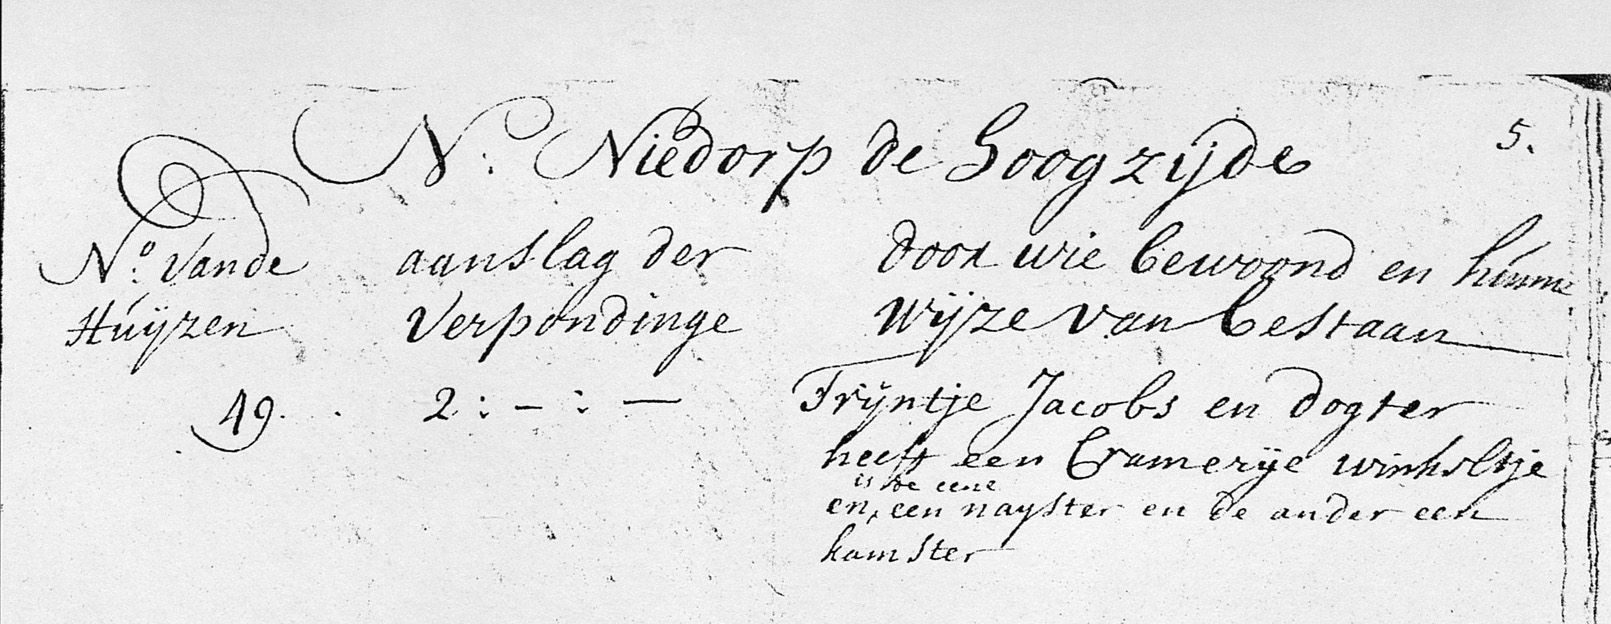 N: Niedorp de Hoogzijde 5.
N.º Vande aanslag der door wie bewoond en hunne
Huÿzen Verpondinge Wijze van bestaan
49. . 2 : – : — Trijntje Jacobs en dogter
heeft een Cramerije winkeltje
is de eene
en, een nayster en de ander een
kamster